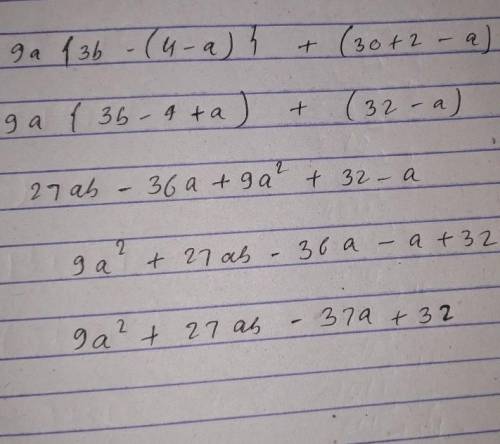 9a {3b - (4 - a)} + (30 + 2 - a)
9a { 3b - 4 + a) + (32 - a)
27ab - 36a + 9a² + 32 - a
9a² + 27ab - 36a - a + 32
9a² + 27ab - 37a + 32